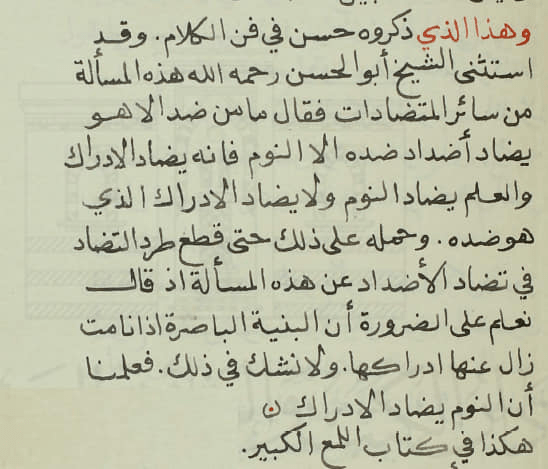 وهذا الذي ذكروه حسن في فن الكلام. وقد
استثنى الشيخ أبو الحسن رحمه الله هذه المسألة
من سائر المتضادات فقال ما من ضد الا هو
يضاد أضداد ضده الا النوم فانه يضاد الادراك
والعلم يضاد النوم ولا يضاد الادراك الذي
هو ضده. وحمله على ذلك حتى قطع طرد التضاد
في تضاد الأضداد عن هذه المسألة اذ قال
نعلم على الضرورة أن البنية الباصرة اذا نامت
زال عنها ادراكها. ولا نشك في ذلك. فعلمنا
أن النوم يضاد الادراك ن
هكذا في كتاب اللمع الكبير.